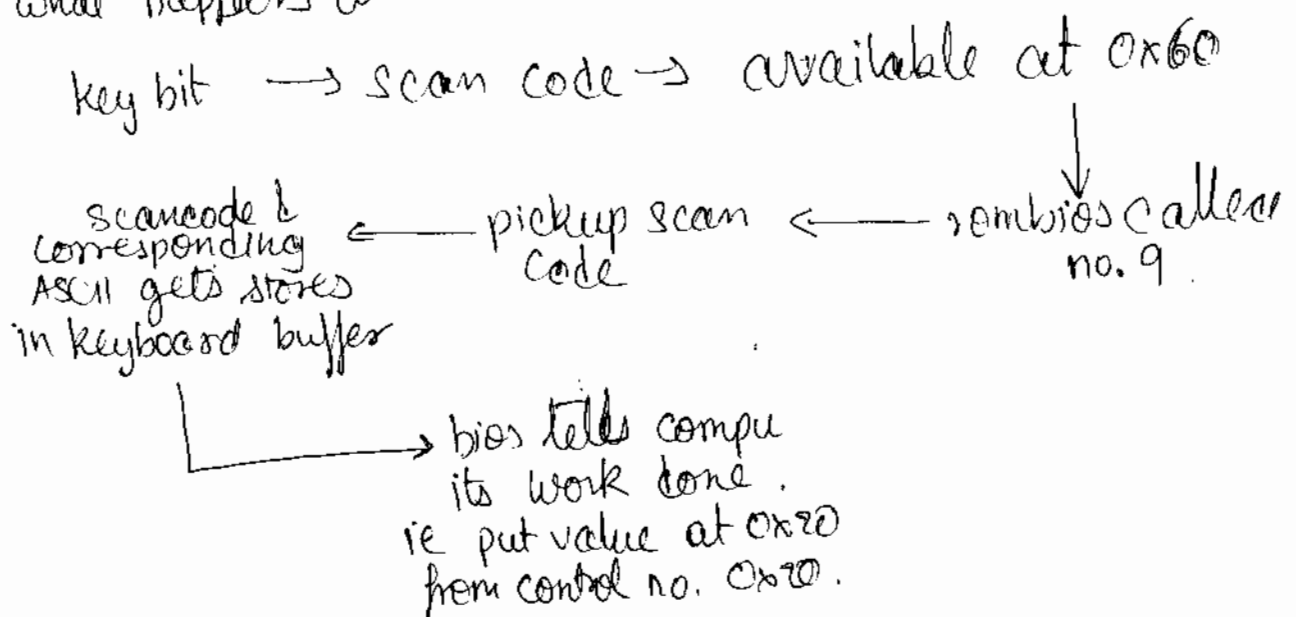 what happens
key bit → scan code → available at 0x60
rombios called
no. 9.
pickup scan
code
scancode &
corresponding
ASCII gets stores
in keyboard buffer
bios tells compu
its work done.
ie put value at 0x20
from control no. 0x20.